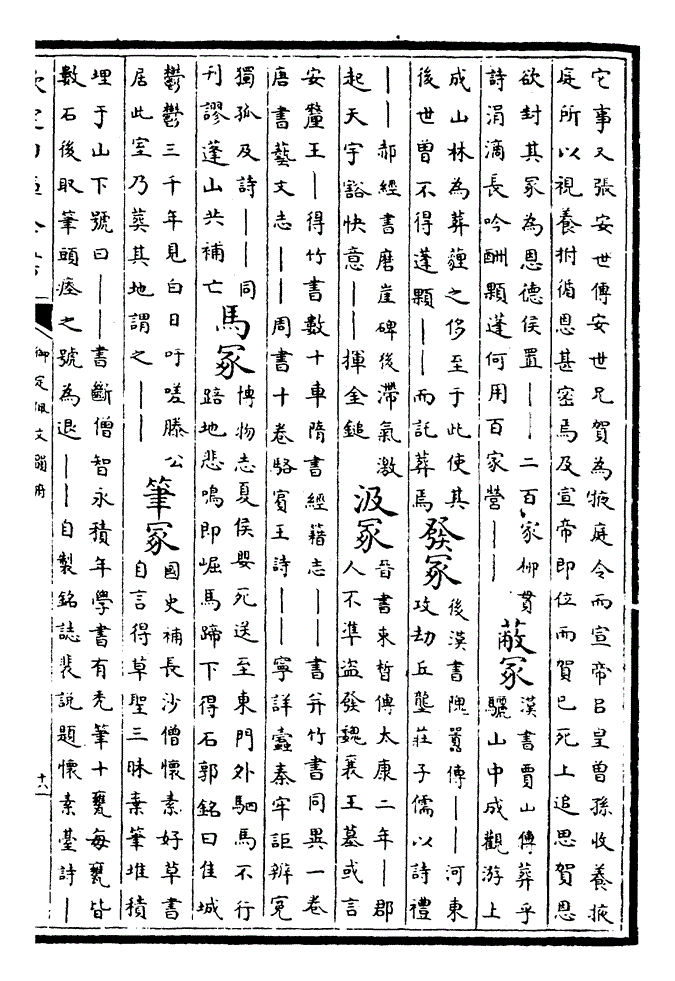 它事又張安世傳安世兄賀為掖庭令而宣帝以皇曾孫收養掖
庭所以視養拊循恩甚密焉及宣帝即位而賀已死上追思賀恩
欲封其冢為恩德侯置｜｜二百家柳貫
詩涓滴長吟酬顆蓬何用百家營｜｜
蔽冢
漢書賈山傳葬乎
驪山中成觀游上
成山林為葬薶之侈至于此使其
後世曾不得蓬顆｜｜而託葬焉
發冢
後漢書隗囂傳｜｜河東
攻劫丘壟莊子儒以詩禮
｜｜郝經書磨崖碑後滯氣激
起天宇豁快意｜｜揮金鎚
汲冢
晉書束晳傳太康二年｜郡
人不準盜發魏襄王墓或言
安釐王｜得竹書數十車隋書經籍志｜｜書并竹書同異一卷
唐書藝文志｜｜周書十卷駱賓王詩｜｜寧詳蠹秦牢詎辨冤
獨孤及詩｜｜同
刊謬蓬山共補亡
馬冢
博物志夏侯嬰死送至東門外駟馬不行
踣地悲鳴即崛馬蹄下得石郭銘曰佳城
鬱鬱三千年見白日吁嗟滕公
居此室乃葬其地謂之｜｜
筆冢
國史補長沙僧懷素好草書
自言得草聖三昧棄筆堆積
埋于山下號曰｜｜書斷僧智永積年學書有禿筆十甕每甕皆
數石後取筆頭瘞之號為退｜｜自製銘誌裴說題懷素臺詩｜
御定佩文韻府
十八